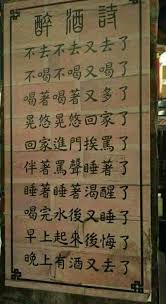 醉酒詩
不去不去又去了
不喝不喝又喝了
喝著喝著又多了
晃悠晃悠回家了
回家進門挨罵了
伴著罵聲睡著了
睡著睡著渴醒了
喝完水後又睡了
早上起來後悔了
晚上有酒又去了